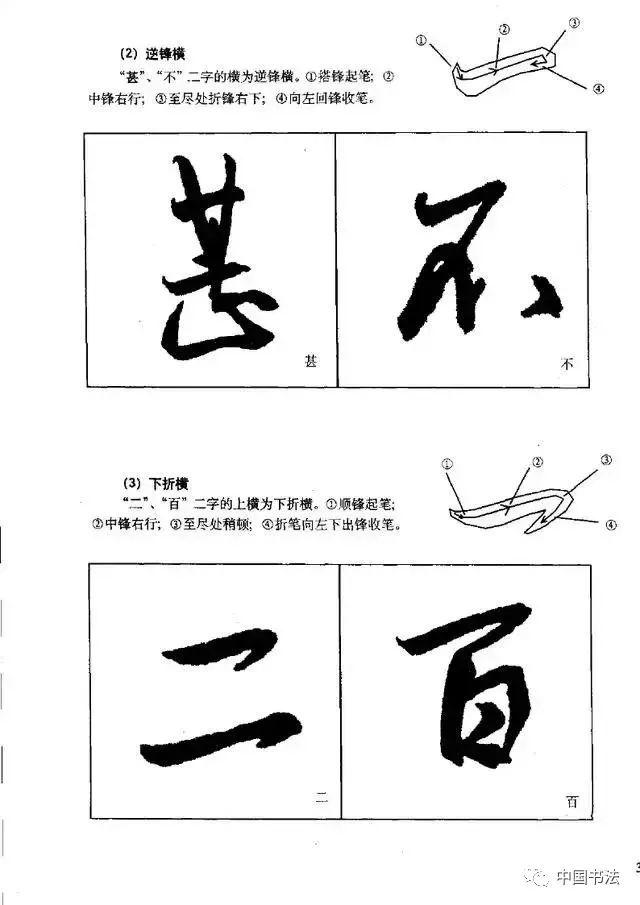 (2) 逆锋横
“甚”、“不”二字的横为逆锋横。①搭锋起笔；②
中锋右行；③至尽处折锋右下；④向左回锋收笔。
① ② ③ ④
甚 不
甚 不
(3) 下折横
“二”、“百”二字的上横为下折横。①顺锋起笔；
②中锋右行；③至尽处稍顿；④折笔向左下出锋收笔。
① ② ③ ④
二 百
二 百
中国书法